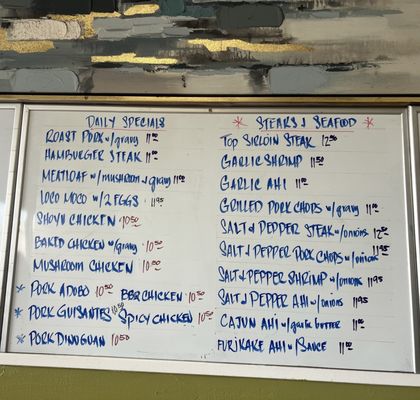 DAILY SPECIALS
ROAST PORK w/gravy 11.00
HAMBURGER STEAK 11.00
MEATLOAF w/mushroom & gravy 11.00
LOCO MOCO w/2 EGGS 11.95
SHOYU CHICKEN 10.50
BAKED CHICKEN w/gravy 10.50
MUSHROOM CHICKEN 10.50
* PORK ADOBO 10.50 BBQ CHICKEN 10.50
* PORK GUISANTES 10.50 SPICY CHICKEN 10.50
* PORK DINUGUAN 10.50
* STEAKS & SEAFOOD *
TOP SIRLOIN STEAK 12.50
GARLIC SHRIMP 11.50
GARLIC AHI 11.00
GRILLED PORK CHOPS w/gravy 11.00
SALT & PEPPER STEAK w/onions 12.50
SALT & PEPPER PORK CHOPS w/onions 11.95
SALT & PEPPER SHRIMP w/onions 11.95
SALT & PEPPER AHI w/onions 11.95
CAJUN AHI w/garlic butter 11.00
FURIKAKE AHI w/SAUCE 11.00